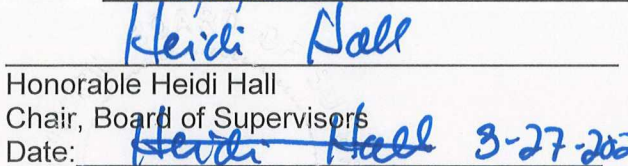 Heidi Hall
Honorable Heidi Hall
Chair, Board of Supervisors
Date: Heidi Hall 3-27-202